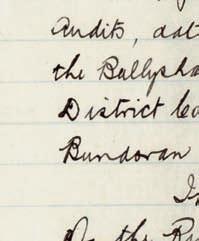 Audits, dat
the Ballysha
District Co
Bundoran
In
On the Ru